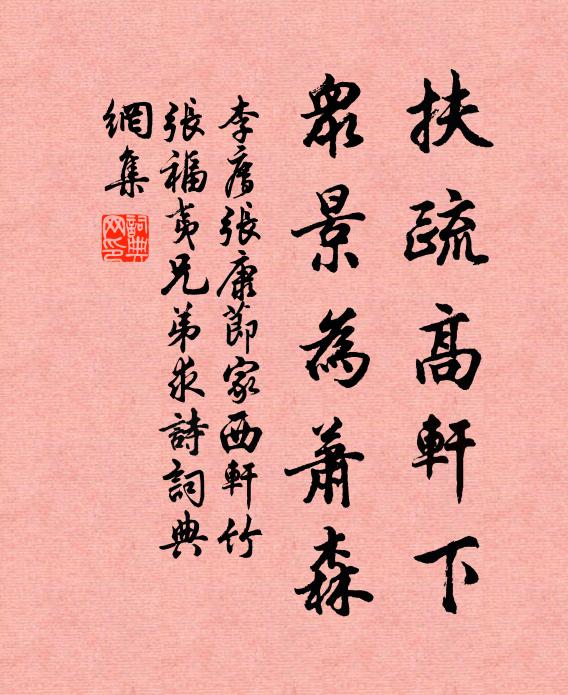 扶疏高軒下
眾景為蕭森
李廌張康節家西軒竹
張福夷兄弟求詩詞典
網集
詞典網印